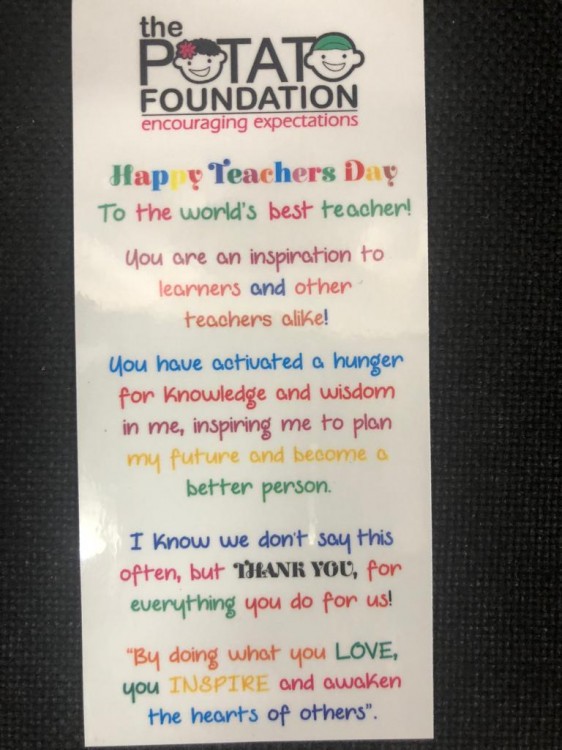 the
POTATO
FOUNDATION
encouraging expectations
Happy Teachers Day
To the world's best teacher!
You are an inspiration to
learners and other
teachers alike!
You have activated a hunger
for knowledge and wisdom
in me, inspiring me to plan
my future and become a
better person.
I know we don't say this
often, but THANK YOU, for
everything you do for us!
"By doing what you LOVE,
you INSPIRE and awaken
the hearts of others".